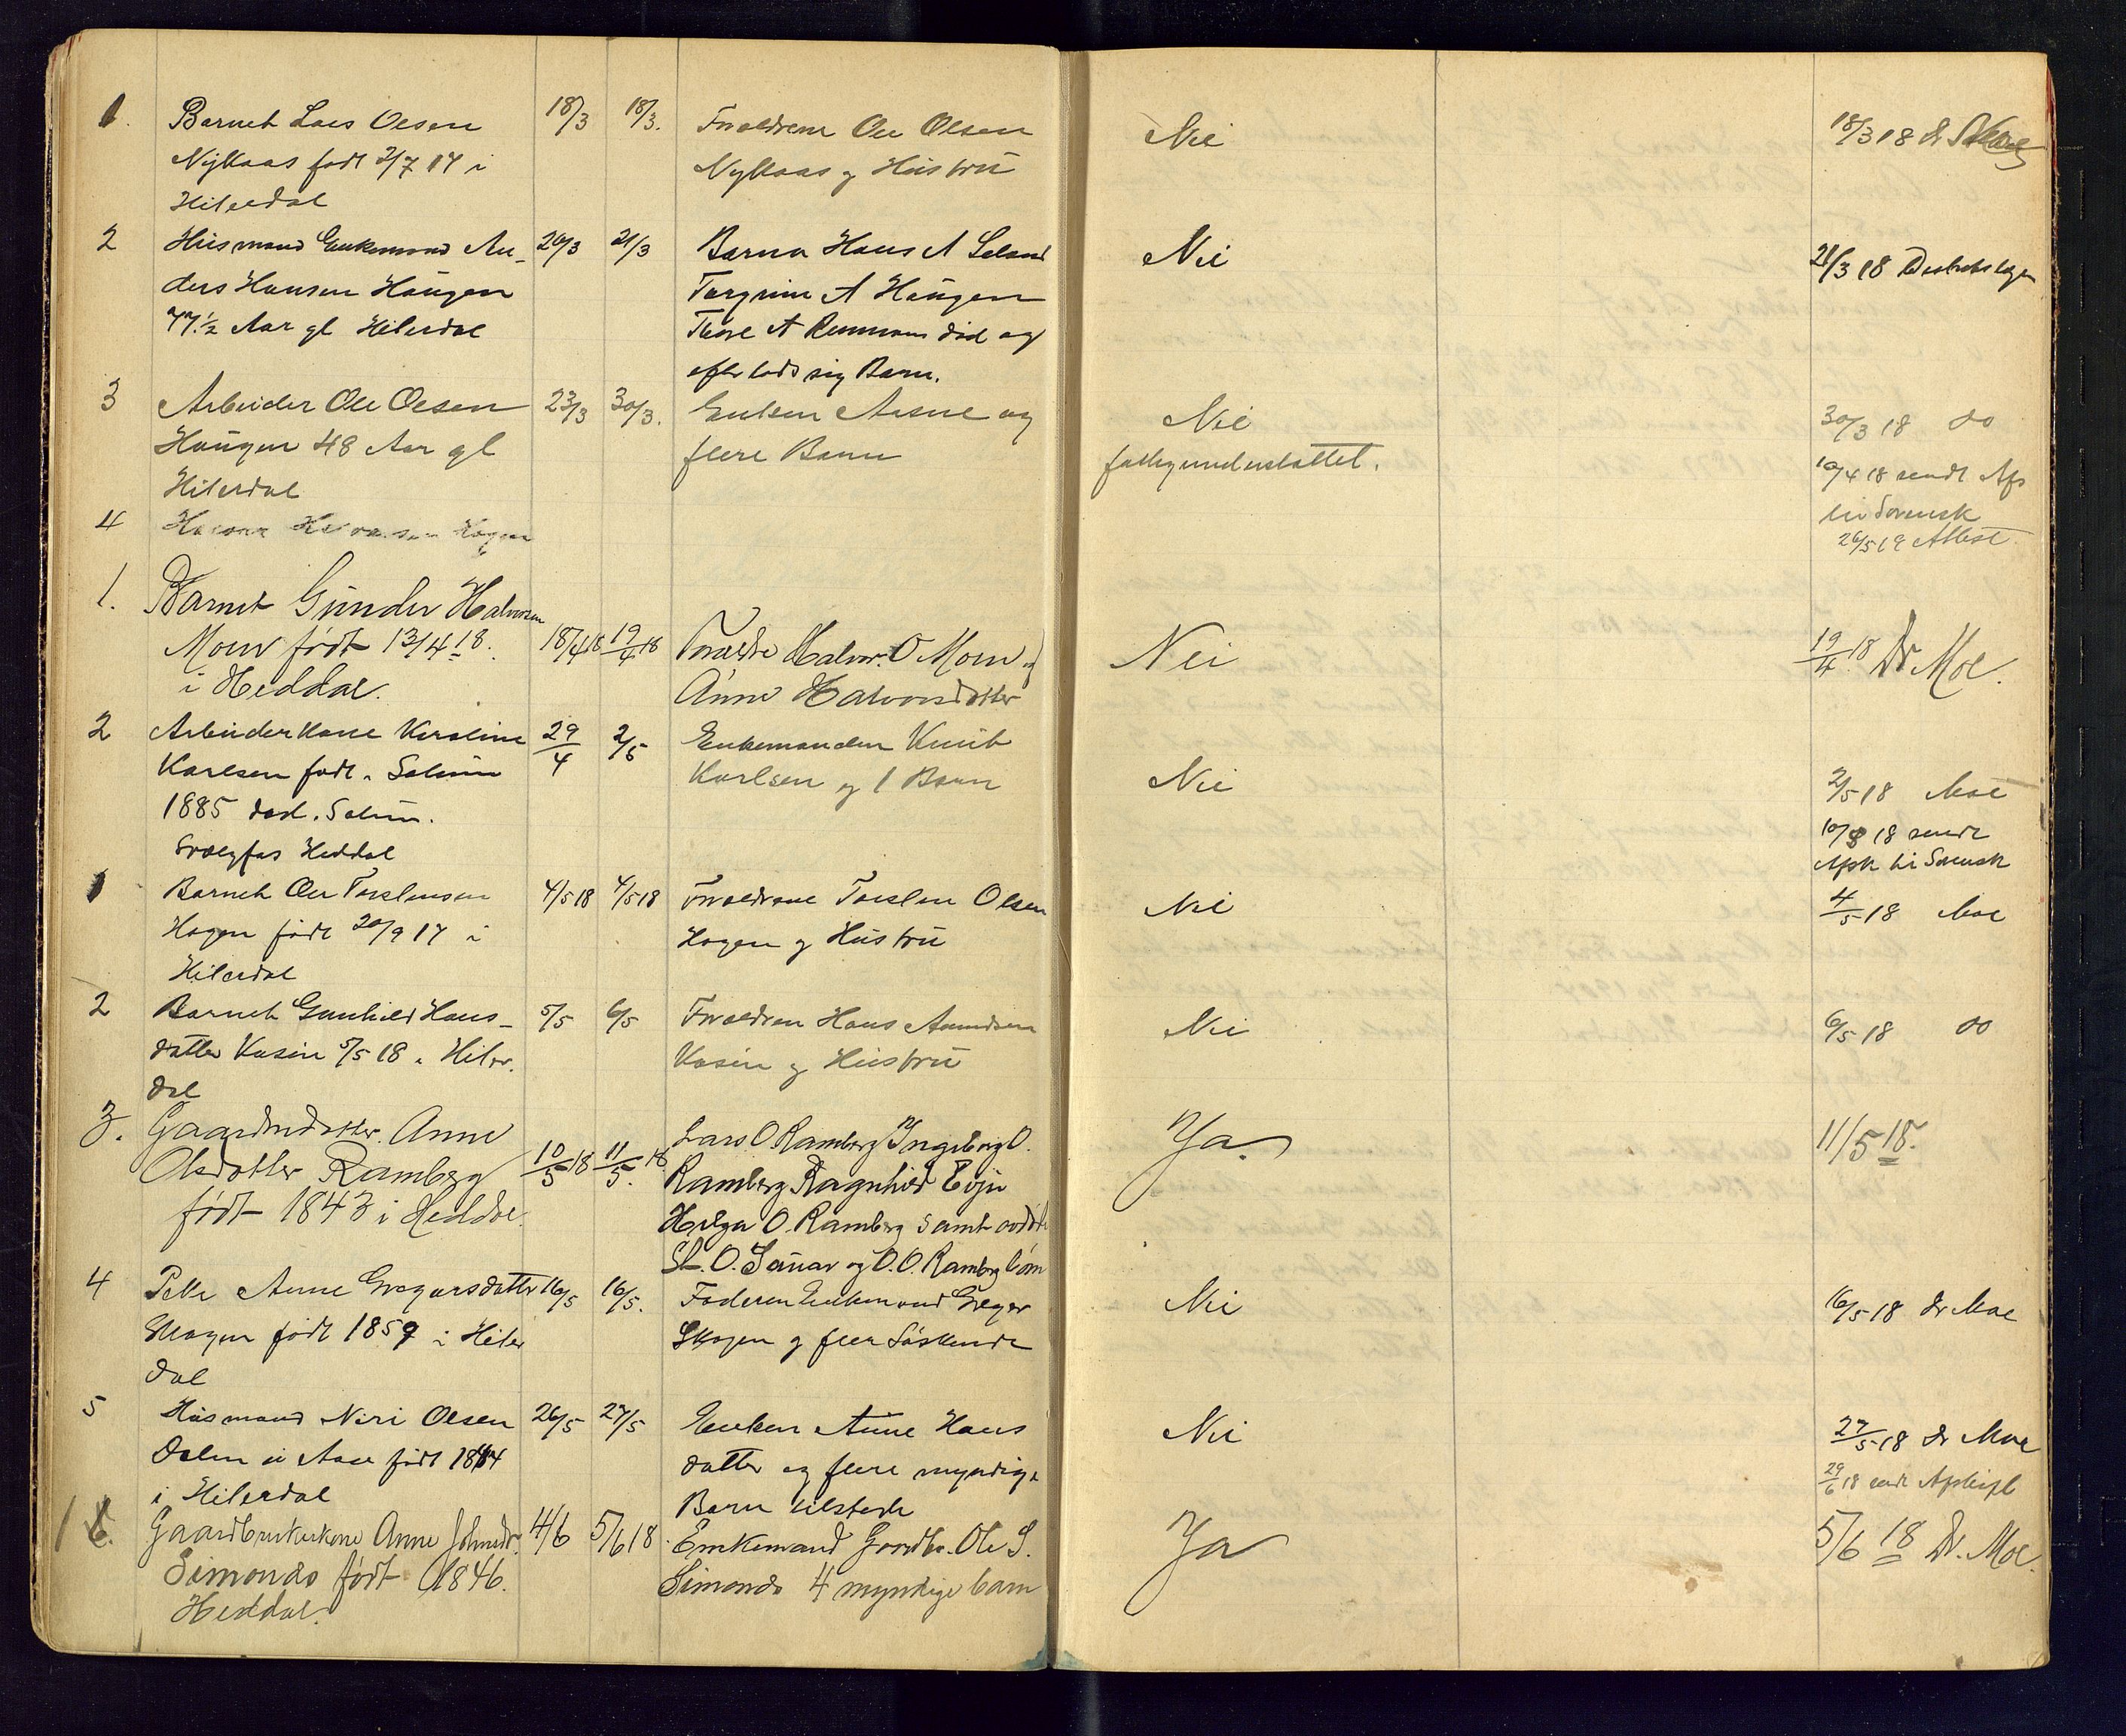 1. Barnet Lars Olsen 18/3 18/3. Foræeldrene Ole Olsen Nei 18/3 18 dr
Nykaas født 2/7 17 i Nykaas og Hustru
Hiterdal
2 Husmand Enkemand An- 20/3 21/3 Barna Hans A Seland Nei 21/3 18 Distriktslægen
ders Hansen Haugen Targrim A Haugen
77 1/2 Aar gl Hiterdal Tore A død og
efterlods sig Barn.
3 Arbeider Ole Olsen 23/3 30/3. Enken Aasne og Nei 30/3 18 do
Haugen 48 Aar gl flere Barn fattigunderstøttet. 10/4 18 sendt Afs
Hiterdal til Sorensk
4 Halvor Halvorsen Hagen 26/5 19 Attest
1. Barnet Gunder Halvorsen
Moen født 13/4 18. 18/4 18 19/4 18 Forældre Halvor O Moen og Nei 19/4 18 Dr Moe.
i Heddal. Anne Halvorsdatter
2 Arbeiderkone Karoline 29/4 2/5 Enkemanden Knut Nei 2/5 18 Moe
Karlsen født i Solum Karlsen og 1 Barn 10/8 18 sendt
1885 død i Solum. Afsk til Sorensk
Svælgfos Heddal
1 Barnet Ole Torstensen 4/5 18 4/5 18 Forældrene Torsten Olsen Nei 4/5 18 Moe
Hagen født 20/9 17 i Hagen og Hustru
Hiterdal
2 Barnet Gunhild Hans- 5/5 6/5 Forældren Hans Amundsen Nei 6/5 18 do
datter Kasin 5/5 18 i Hiter Kasin og Hustru
dal
3. Gaardmdatter Anne 10/5 18 11/5. 18 Lars O Ramberg Ingeborg O. Ja. 11/5 18.
Olsdatter Ramberg Ramberg Ragnhild Evju
født 1843 i Heddal. Helga O. Ramberg samt avdøde
St. O. Sauar og O. O. Ramberg børn
4 Pike Anne Gregarsdatter 16/5 16/5. Faderen Enkemand Greger Nei 16/5 18 dr Moe
Skogen født 1859 i Hiter Skogen og flere Søskende
dal
5 Husmand Niri Olsen 26/5 27/5 Enken Anne Hans Nei 27/5 18 dr Moe
Dalen u Aase født 1844 datter og flere myndige 29/6 18 sendt Afskrift
i Hiterdal Barn tilstede
1 6. Gaardbrukerkone Anne Johnsdr. 4/6 5/6 18 Enkemand Gaardbr. Ole S. Ja 5/6 18 Dr. Moe.
Simonds født 1846. Simonds 4 myndige barn
Heddal.